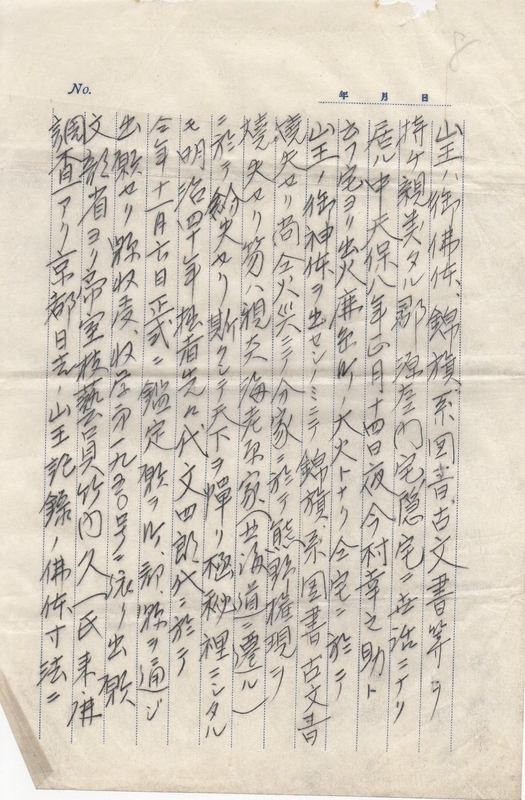 8
No.
年 月 日
山王ハ御佛体、錦旗系図書古文書等ヲ
持ケ親类タル郡源左ヱ門宅隠宅ニ世話ニナリ
居ル中天保八年正月十四日夜今村幸之助ト
云フ宅ヨリ出火 町ノ大火トナリ仝宅ニ於テ
山王ノ御神体ヲ出セシノミニテ錦旗系図書古文書
焼失セリ尚仝火災ニテ分家ニ於テ熊野権現ヲ
焼失セリ 親类海老原家(北海道ニ遷ル)
ニ於テ紛失セリ斯クシテ天下ヲ憚リ極秘裡ニシタル
モ明治四十年拙者先々代文四郎代ニ於テ
仝年十一月六日正式ニ鑑定願ヲ町、郡、縣ヲ通ジ
出願セリ縣収受、収学第一九五〇号ニ依リ出願
文部省ヨリ帝室技藝員竹内久一氏来
調査アリ京都日吉ノ山王記録ノ佛体寸法ニ